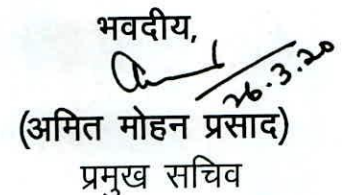 भवदीय,
26.3.20
(अमित मोहन प्रसाद)
प्रमुख सचिव